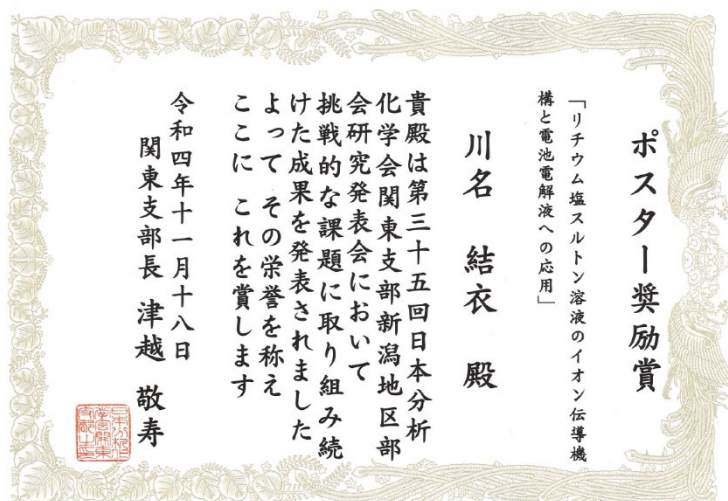 ポスター奨励賞
「リチウム塩スルトン溶液のイオン伝導機
構と電池電解液への応用」
川名 結衣 殿
貴殿は第三十五回日本分析
化学会関東支部新潟地区部
会研究発表会において
挑戦的な課題に取り組み続
けた成果を発表されました
よって その栄誉を称え
ここに これを賞します
令和四年十一月十八日
関東支部長 津越 敬寿